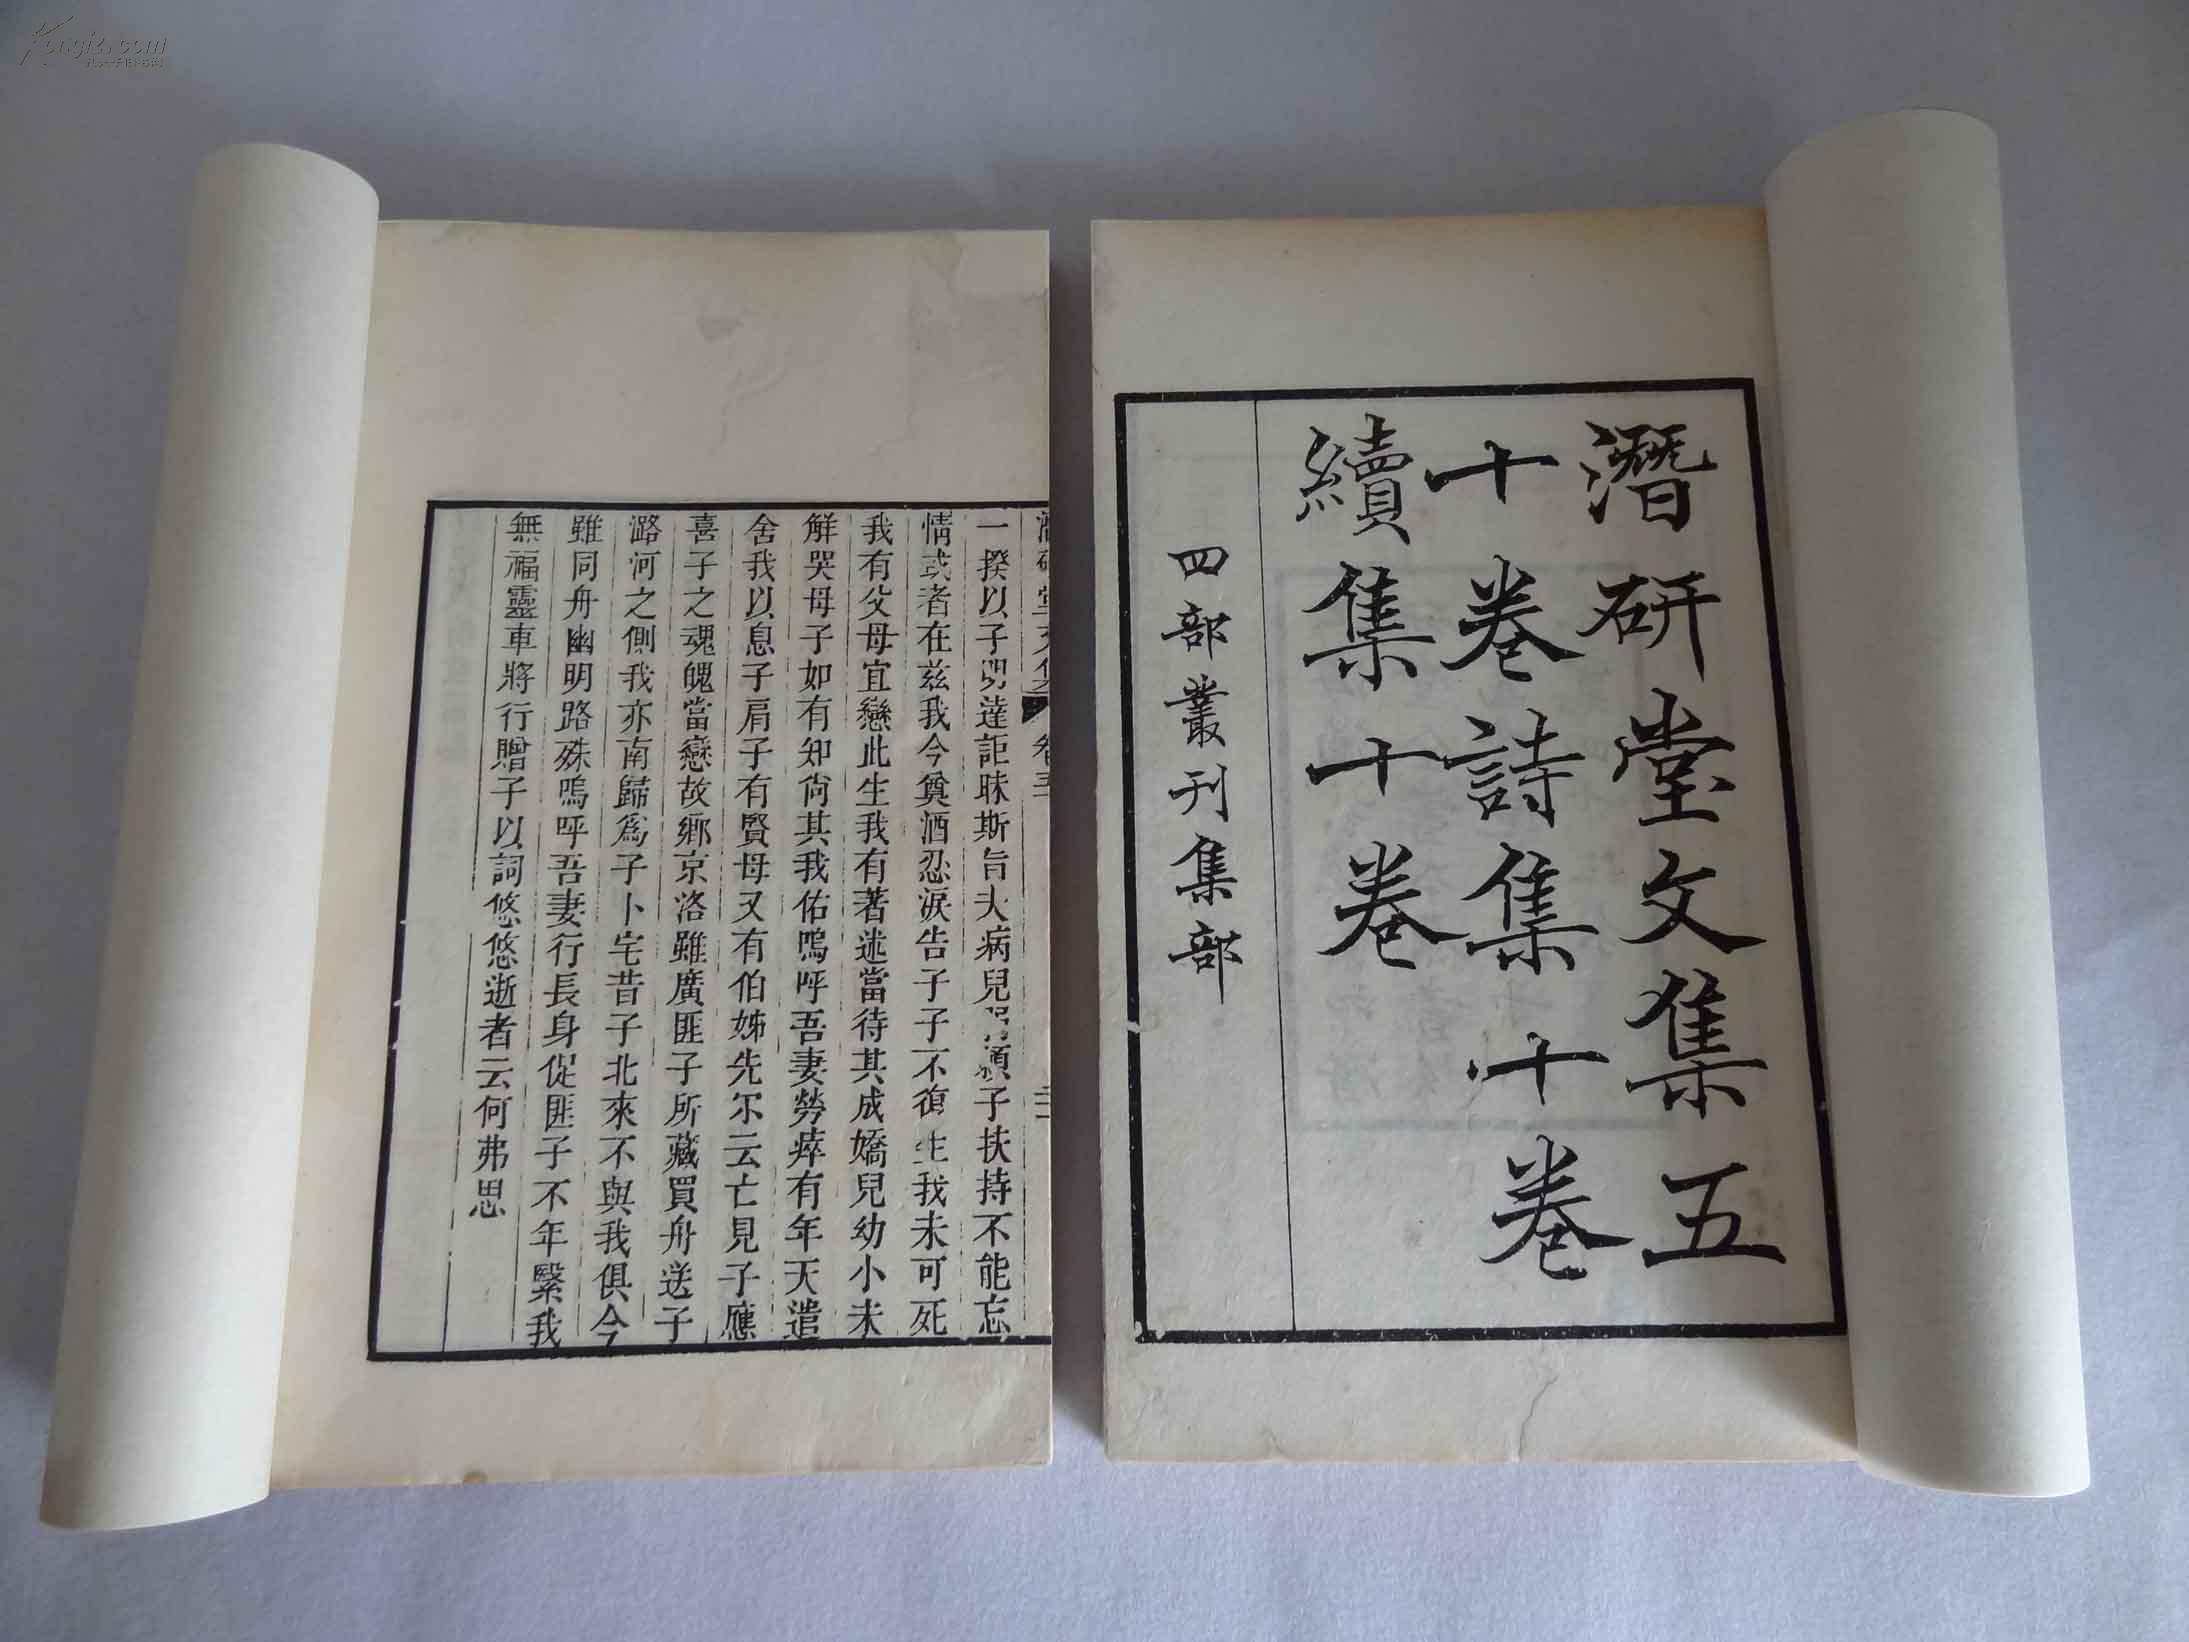 潛研堂文集五
十卷詩集十卷
續集十卷
四部叢刊集部
一揆以子明達詎昧斯旨夫病兒弱顧子扶持不能忘
情或者在茲我今奠酒忍淚告子子不復生我未可死
我有父母宜戀此生我有著述當待其成嬌兒幼小未
解哭母子如有知尚其我佑嗚呼吾妻勞瘁有年天遣
舍我以息子肩子有賢母又有伯姊先尓云亡見子應
喜子之魂魄當戀故鄉京洛雖廣匪子所藏買舟送子
潞河之側我亦南歸爲子卜宅昔子北來不與我俱今
雖同舟幽明路殊嗚呼吾妻行長身促匪子不年繄我
無福靈車將行贈子以詞悠悠逝者云何弗思
Kongfz.com